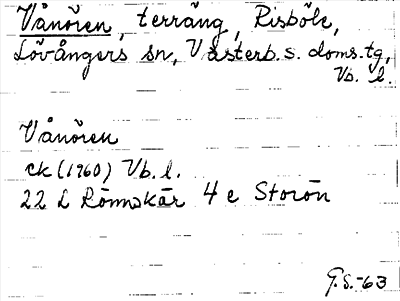 Vånören, terräng, Risböle,
Lövångers sn, Västerb. s. doms. tg,
Vb. l.
Vånören
ek (1960) Vb. l.
22 L Rönnskär 4 e Storön
G.S.-63